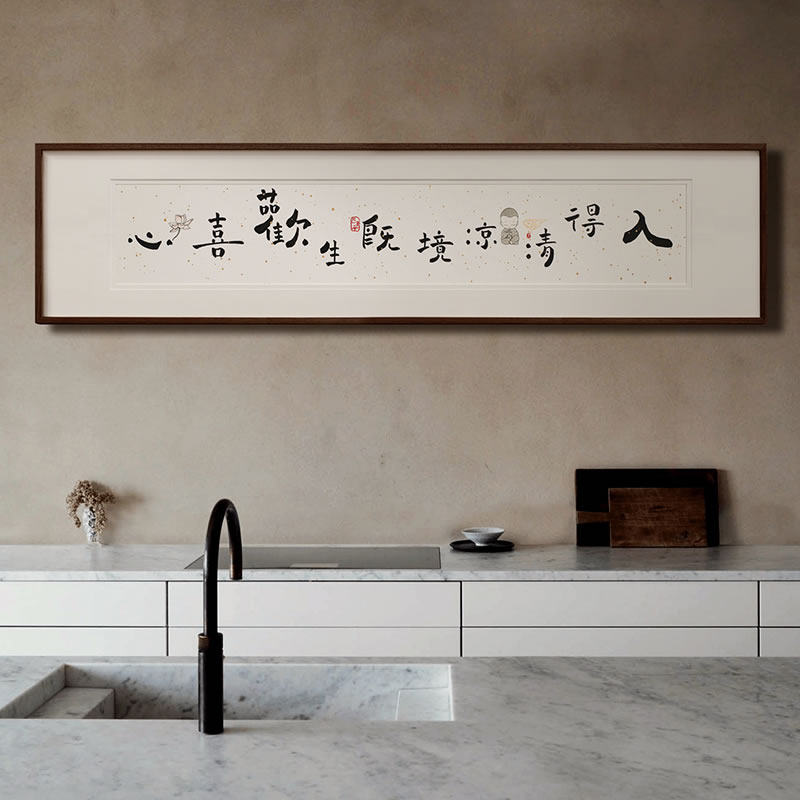 入得清涼境既生歡喜心